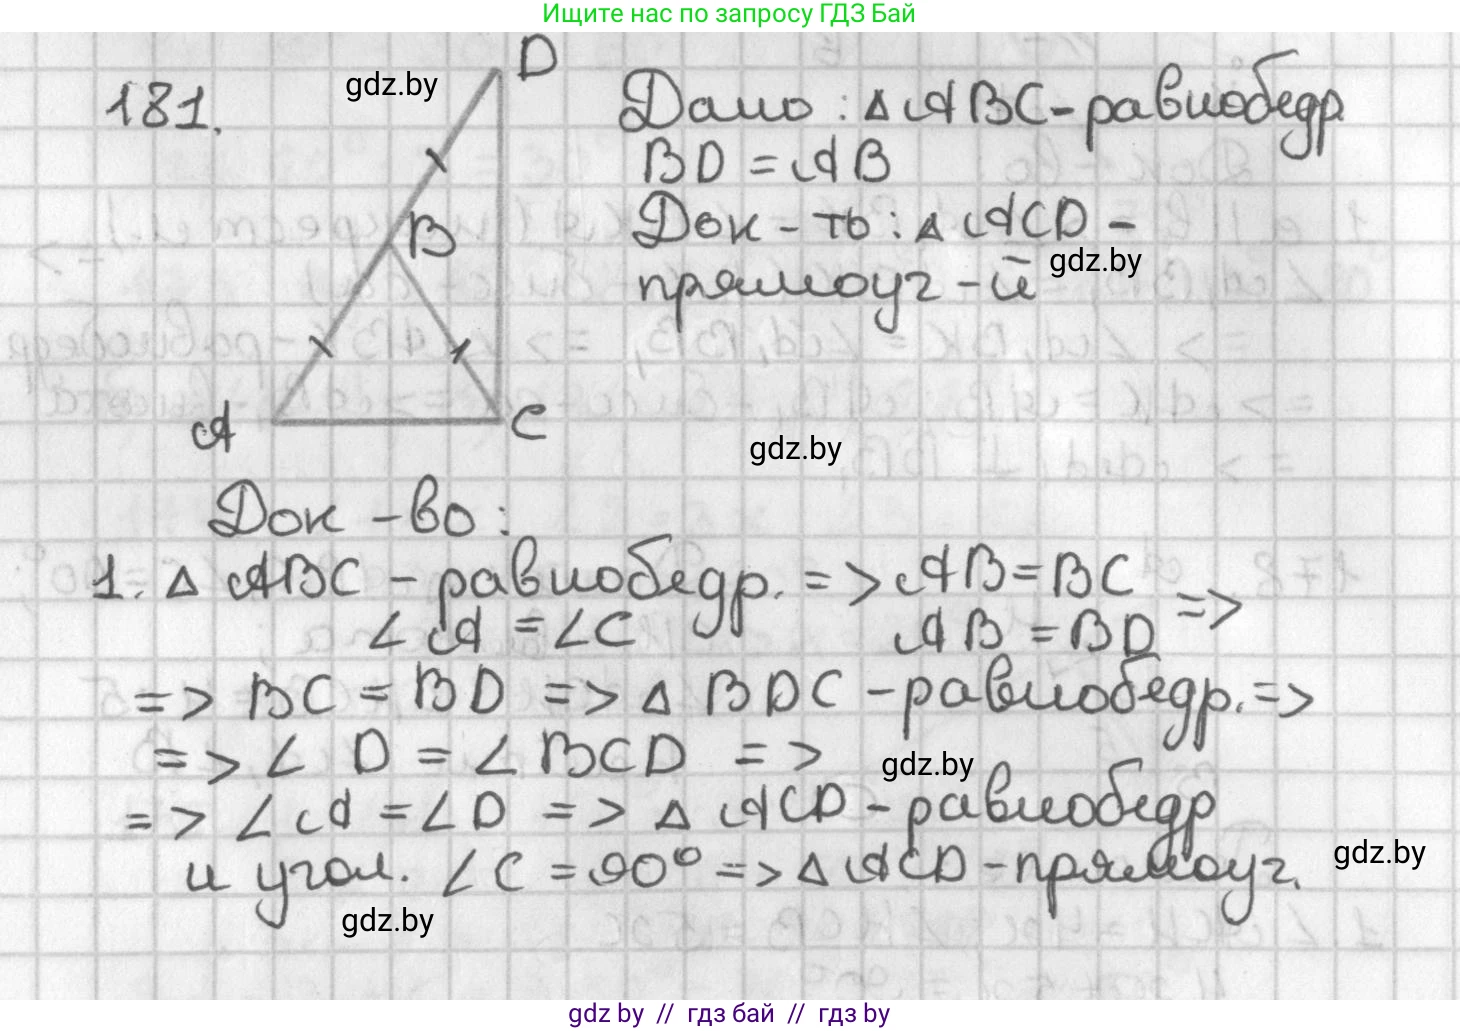 Ищите нас по запросу ГДЗ Бай
181.
D
B
A
C
gdz.by
Дано: Δ ABC - равнобедр.
BD = AB
Док - ть: Δ ACD -
прямоуг - й
gdz.by
gdz.by
Док - во:
1. Δ ABC - равнобедр. => AB = BC
∠A = ∠C AB = BD =>
=> BC = BD => Δ BDC - равнобедр. =>
=> ∠ D = ∠ BCD =>
gdz.by
=> ∠A = ∠D => Δ ACD - равнобедр
и угол. ∠C = 90° => Δ ACD - прямоуг.
gdz.by
gdz.by
gdz by // гдз бай // гдз by